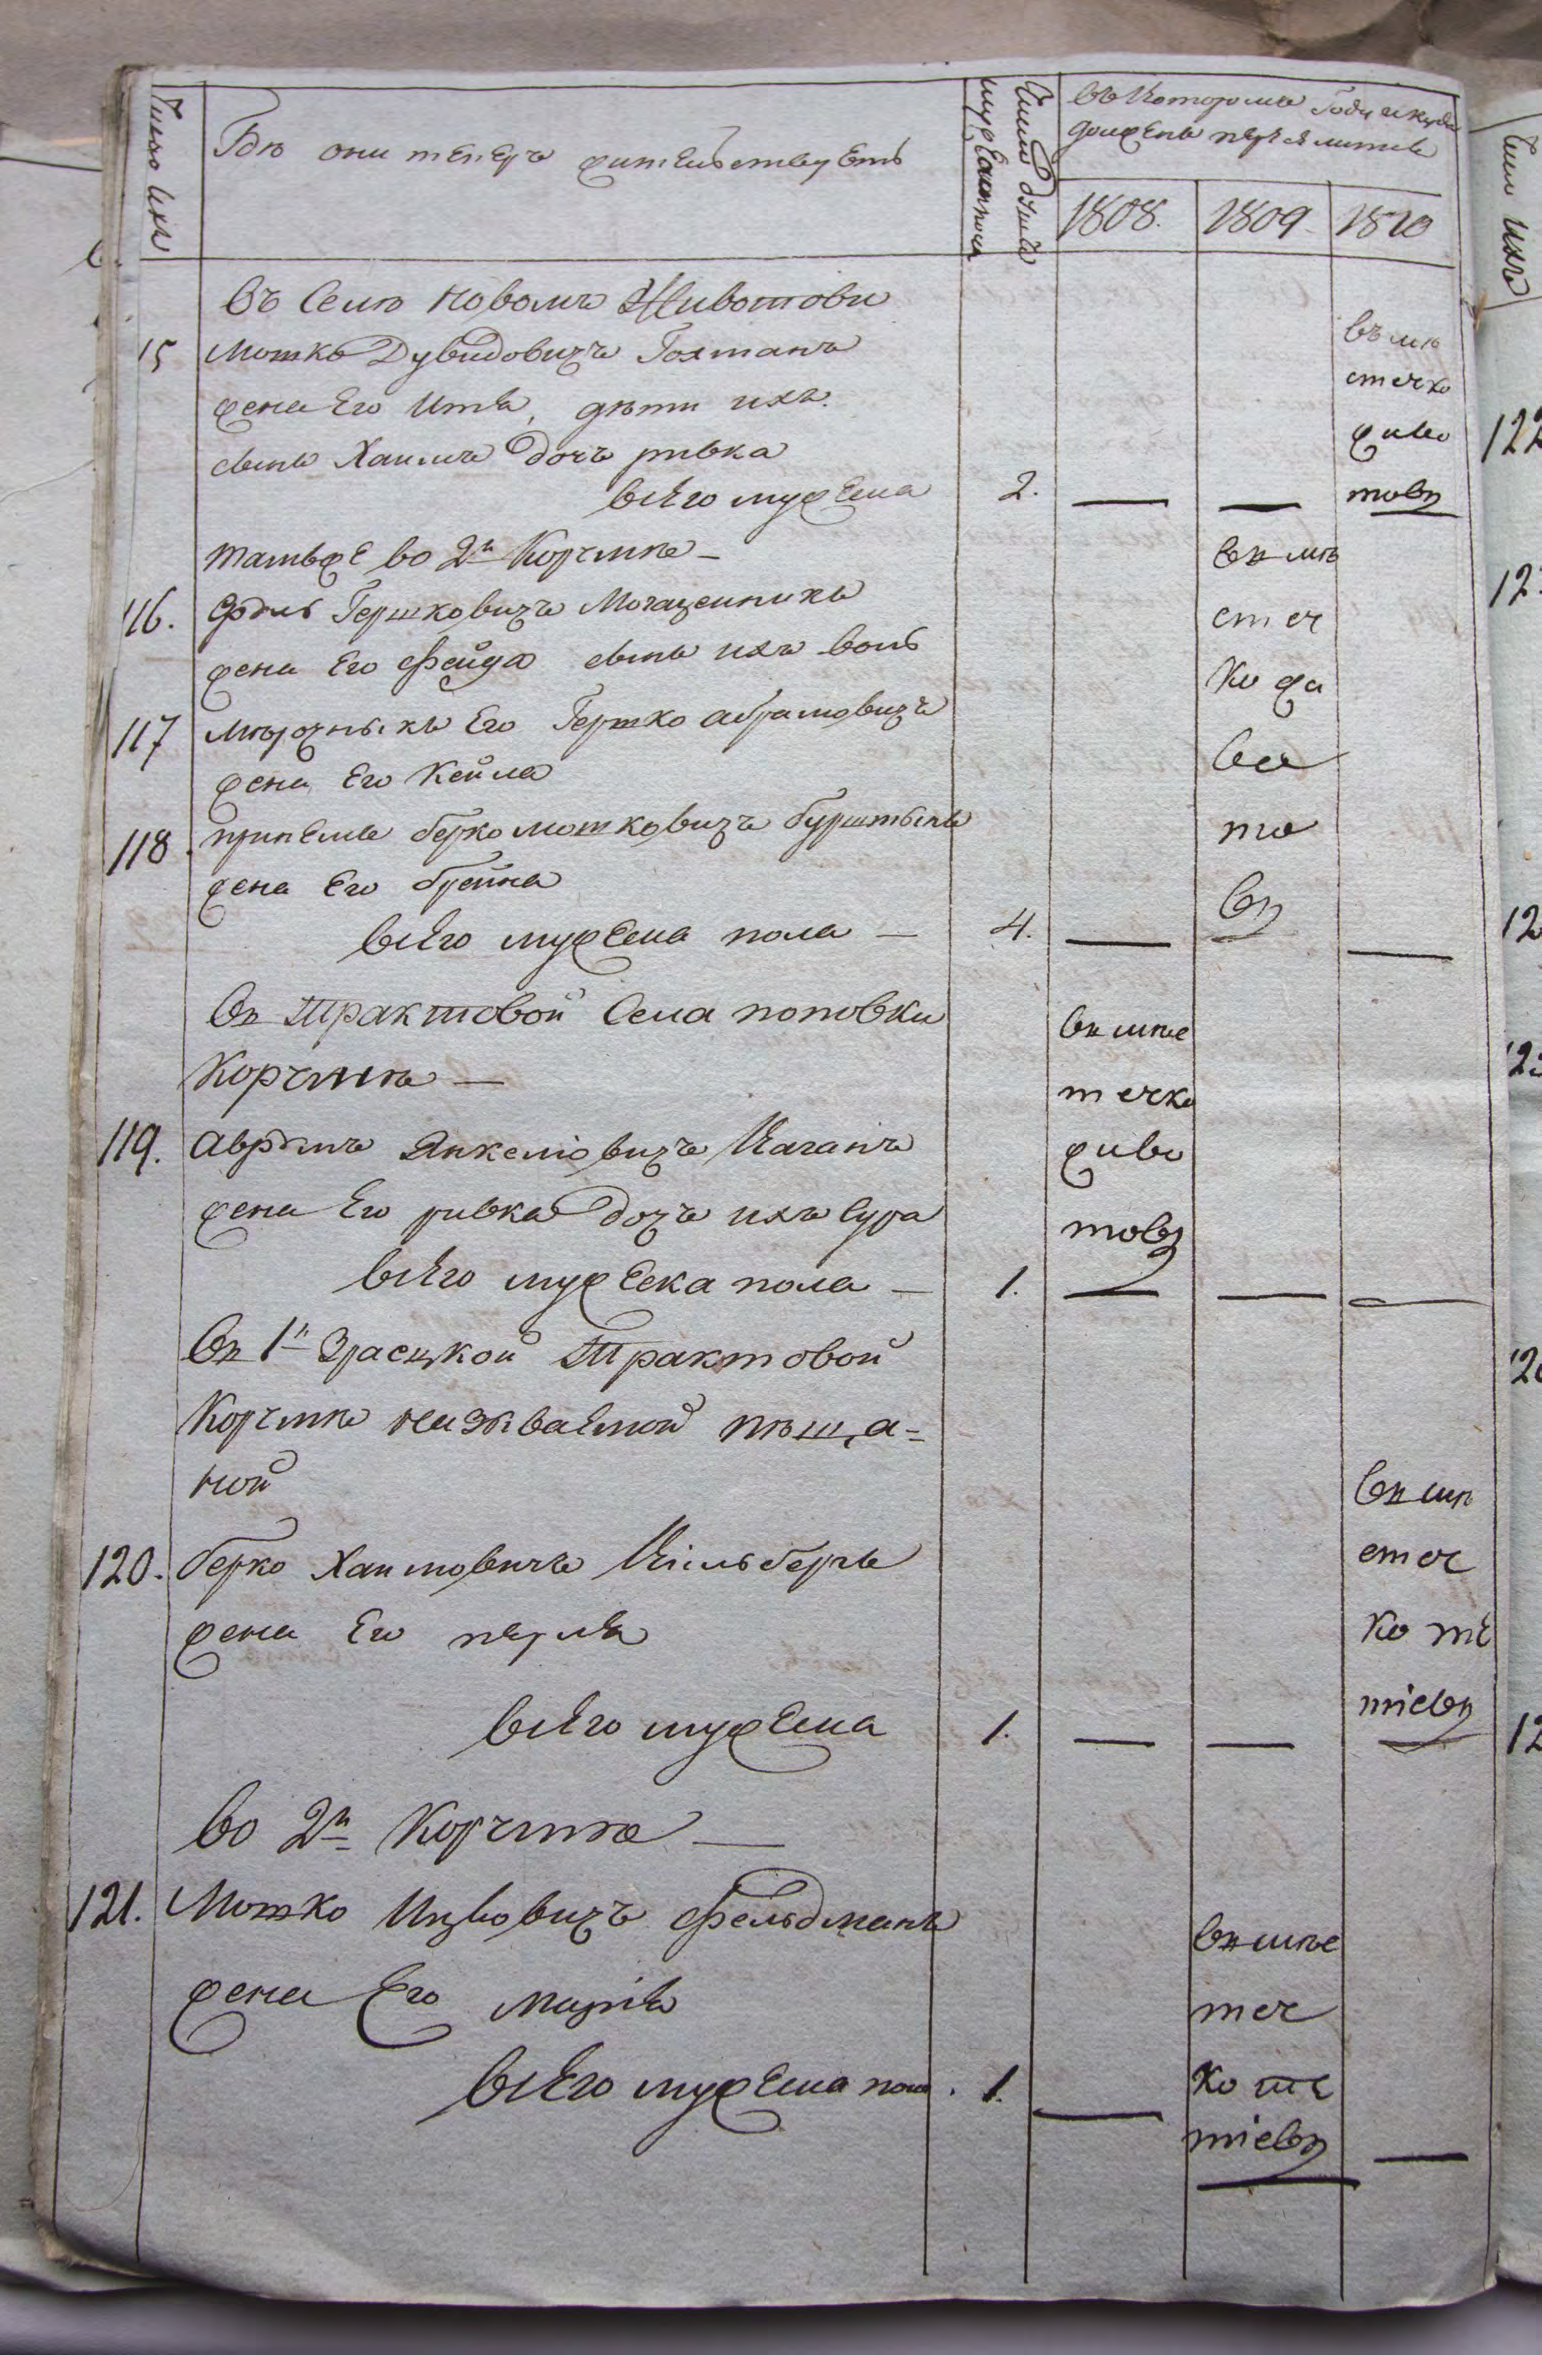 Число ихъ
Гдѣ они теперъ жительствуетъ
Число душъ
мужеска пола
въ Которомъ Году и куда
долженъ переѣлитсъ
1808.
1809
1810
въ Селѣ новомъ Животови
15 Мошко Дувидовичъ Гохманъ
жена Его Итъа, дѣти ихъ.
сынъ Хаимъ дочъ ривка
всЕго мужеска 2.
въ мѣ
стечко
живо
товъ
тамъже во 2й Корчмѣ
116. Фроль Гершковичъ Могазенникъ
жена Его Фейда сынъ ихъ воль
117 Мѣрочныкъ Его Гершко абрамовичъ
жена Его Кейла
118. припЕмъ берко мошковичъ бурштынъ
жена Его брейна
всЕго мужеска пола 4.
въ мѣ
стеч
ко жи
во
то
въ
въ Трактовой Села поповки
Корчмѣ
119. аврумъ Янкеліовичъ Каганъ
жена Его ривка дочъ ихъ Сура
всЕго мужеска пола 1.
въ мѣс
течко
живо
товъ
въ 1й Зраецкой Трактовой
Корчмѣ называЕмой пѣща=
ной
120. берко Хаимовичъ Кильбергъ
жена Его перла
всЕго мужеска 1.
въ мѣ
стеч
ко те
тіевъ
во 2й Корчмѣ
121. Мошко Ицковичъ Фельдманъ
жена Его маріа
всЕго мужеска пола. 1.
въ мѣс
теч
ко те
тіевъ
Число ихъ
122